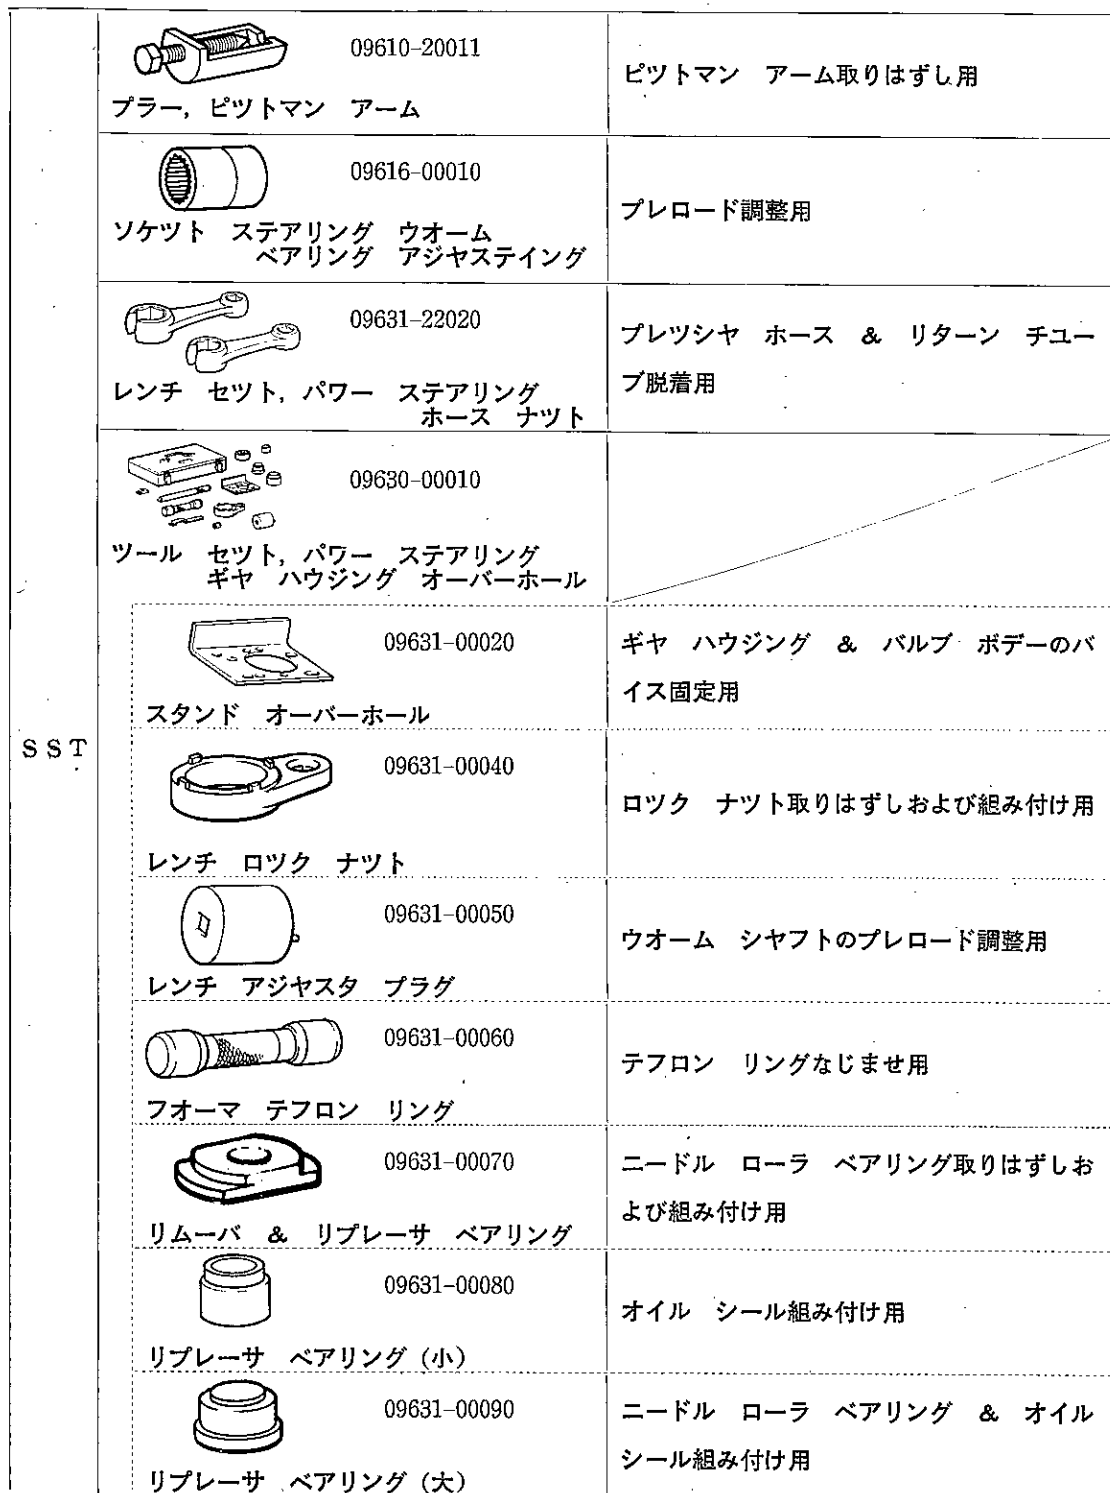 09610-20011
プラー, ピツトマン　アーム
ピツトマン　アーム取りはずし用
09616-00010
ソケツト　ステアリング　ウオーム
ベアリング　アジヤステイング
プレロード調整用
09631-22020
レンチ　セツト, パワー　ステアリング
ホース　ナツト
プレツシヤ　ホース　&　リターン　チユー
ブ脱着用
09630-00010
ツール　セツト, パワー　ステアリング
ギヤ　ハウジング　オーバーホール
SST
09631-00020
スタンド　オーバーホール
ギヤ　ハウジング　&　バルブ　ボデーのバ
イス固定用
09631-00040
レンチ　ロツク　ナツト
ロツク　ナツト取りはずしおよび組み付け用
09631-00050
レンチ　アジヤスタ　プラグ
ウオーム　シヤフトのプレロード調整用
09631-00060
フオーマ　テフロン　リング
テフロン　リングなじませ用
09631-00070
リムーバ　&　リプレーサ　ベアリング
ニードル　ローラ　ベアリング取りはずしお
よび組み付け用
09631-00080
リプレーサ　ベアリング (小)
オイル　シール組み付け用
09631-00090
リプレーサ　ベアリング (大)
ニードル　ローラ　ベアリング　&　オイル
シール組み付け用